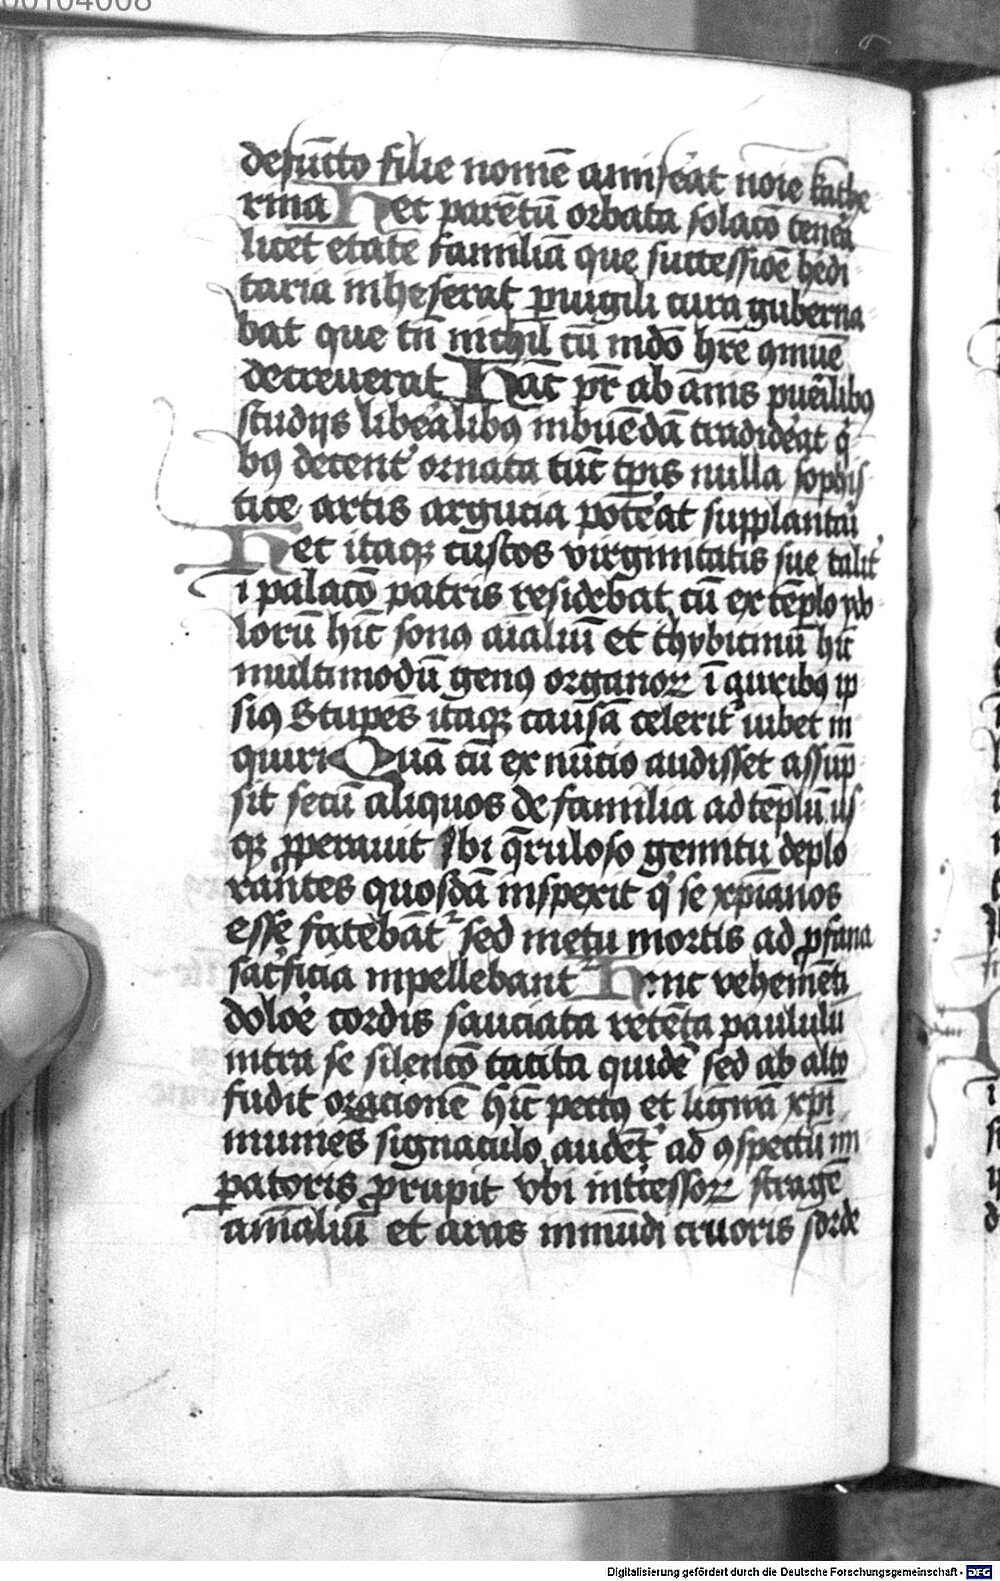 00104008
defūcto filie nomē amiſ̄eat noīe kathe
rina Hec parētū orbata ſolacō tene᷑a
licet etate familiā que ſucceſſiōe hedi
taria inheſerat puigili cura guberna
bat que tn̄ nichil cū mdō hr̄e ꝯmue
decreuerat Hāc pr̄ ab anīs pueīlibꝰ
ſtudijs libealibꝰ inbuēdā tradideat q̇
bꝰ decent᷑ ornata tūc tp̄is nulla ſophiſ
tice artis argucia poteat ſupplantaī
Hec itaqꝫ cuſtos virginitatis ſue talit᷑
ī palacō patris reſidebat cū ex tēplo ydo
lorū hīc ſonꝰ aīaliū et thybicinū hīc
multimodū genꝰ organoꝝ ī auribꝰ ip
ſiꝰ Stupēs itaqꝫ cauſā celerit᷑ iubet in
quiri Quā cū ex nūcio audiſſet aſſūp
ſit ſecū aliquos de familia ad tēplū uſ
qꝫ ꝓperauit Ibi q̄ruloſo gemitu deplo
rantes quoſdā inſpexit q̇ ſe xp̄ianos
eſſe fatebāt᷑ ſed metu mortis ad ꝓfana
ſac᷑ficia inpellebant᷑ Hinc vehemēti
doloe᷑ cordis ſauciata retēta paululū
intra ſe ſilencō tacita quidē ſed ab alto
fudit oracionē hīc pectꝰ et lignuā xp̄i
muniēs ſignaculo audēt᷑ ad ꝯſpectū im
patoris ꝓrupit vbi int᷑ceſſoꝝ ſtragē
aīmaliū et aras inmūdi cruoris ſorde
Digitalisierung gefördert durch die Deutsche Forschungsgemeinschaft - DFG